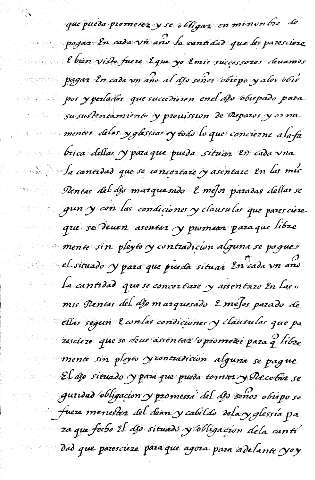 que pueda prometer y se obligar en mi nonbre de
pagar En cada vn año la cantidad que les paresciere
E bien visto fuere E que yo E mis suscessores devamos
pagar En cada vn año al dho señor obispo y a los obis
pos y perlados que suscedieren en el dho obispado para
su sustentamiento y provission de Reparos y orna
mentos de las yglessias y todo lo que conçierne a la fa
brica dellas y para que pueda situar En cada vna
la cantidad que se concertare y asentare En las mis
Rentas del dho marquesado E mejor paradas dellas se
gun y con las condiçiones y clausulas que paresciere
que se deven asentar y prometer para que libre
mente sin pleyto y contradiçion alguna se pague
el situado y para que pueda situar En cada vn año
la cantidad que se concertare y asentare En las
mis Rentas del dho marquesado E mejor parado de
ellas segun E con las condiçiones y clausulas que pa
resciere que se deve asentar o prometer para q libre
mente sin pleyto y contradiçion alguna se pague
El dho situado y para que pueda tomar y Recebir se
guridad obligaçion y promessa del dho señor obispo se
fuere menester del dean y cabildo de la yglessia pa
ra que fecho El dho situado y obligaçion de la canti
dad que paresciere para que agora para adelante yo y